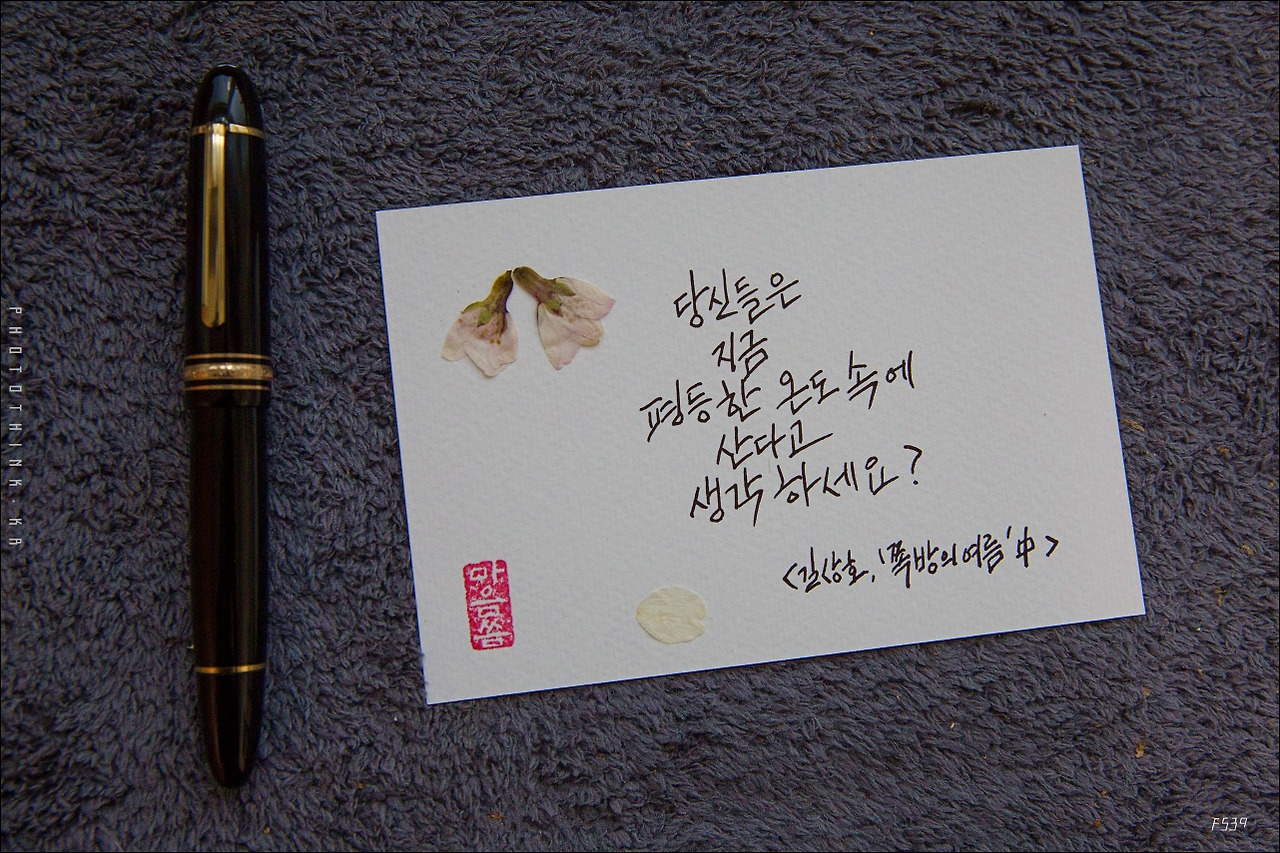 PHOTOTHINK.KR
당신들은
지금
평등한 온도 속에
산다고
생각하세요?
<길상호, '쪽방의 여름' 中>
FS39